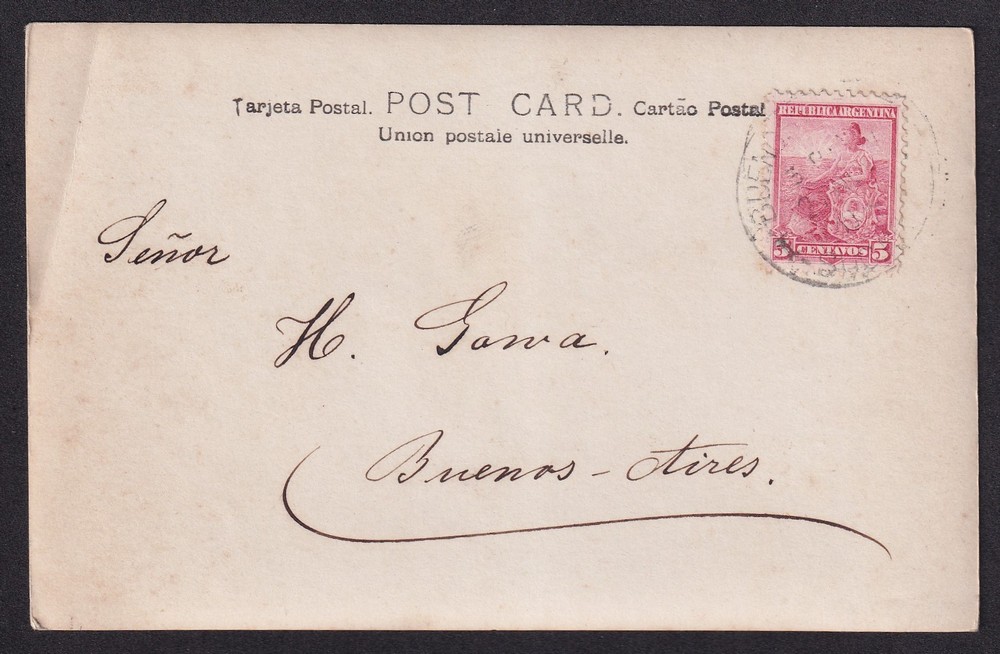 Tarjeta Postal. POST CARD. Cartão Postal
Union postale universelle.
REPUBLICA ARGENTINA
5 CENTAVOS 5
Señor
H. Gowa.
Buenos-Aires.